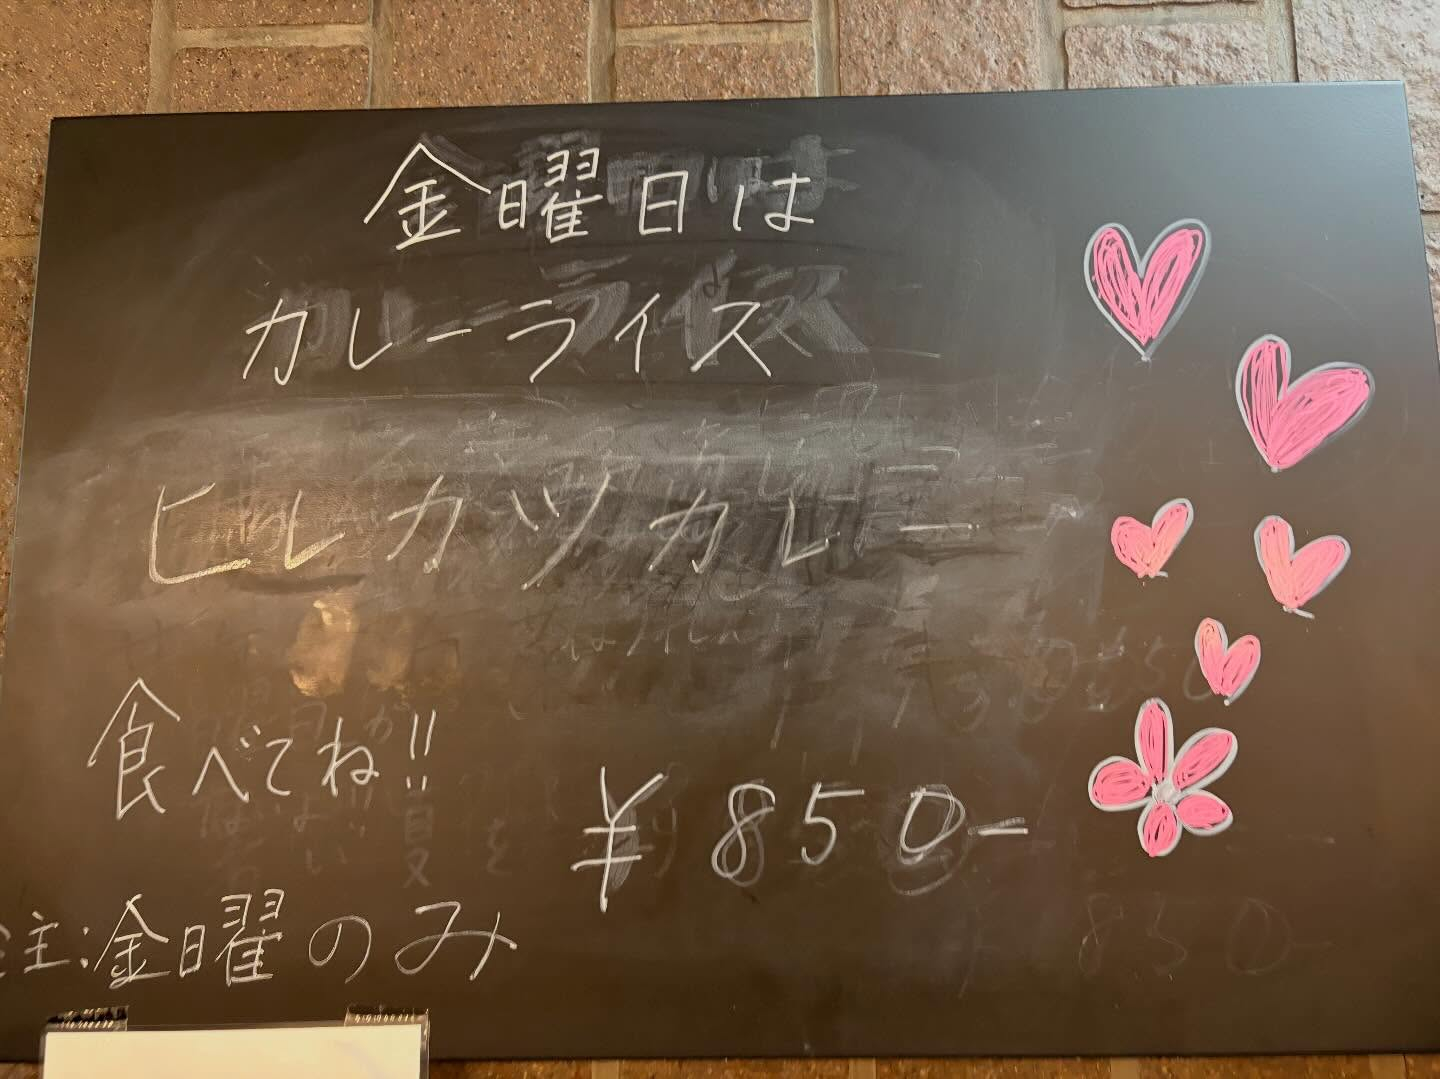 金曜日は
カレーライス
ヒレカツカレー
食べてね!!
¥850-
注:金曜のみ